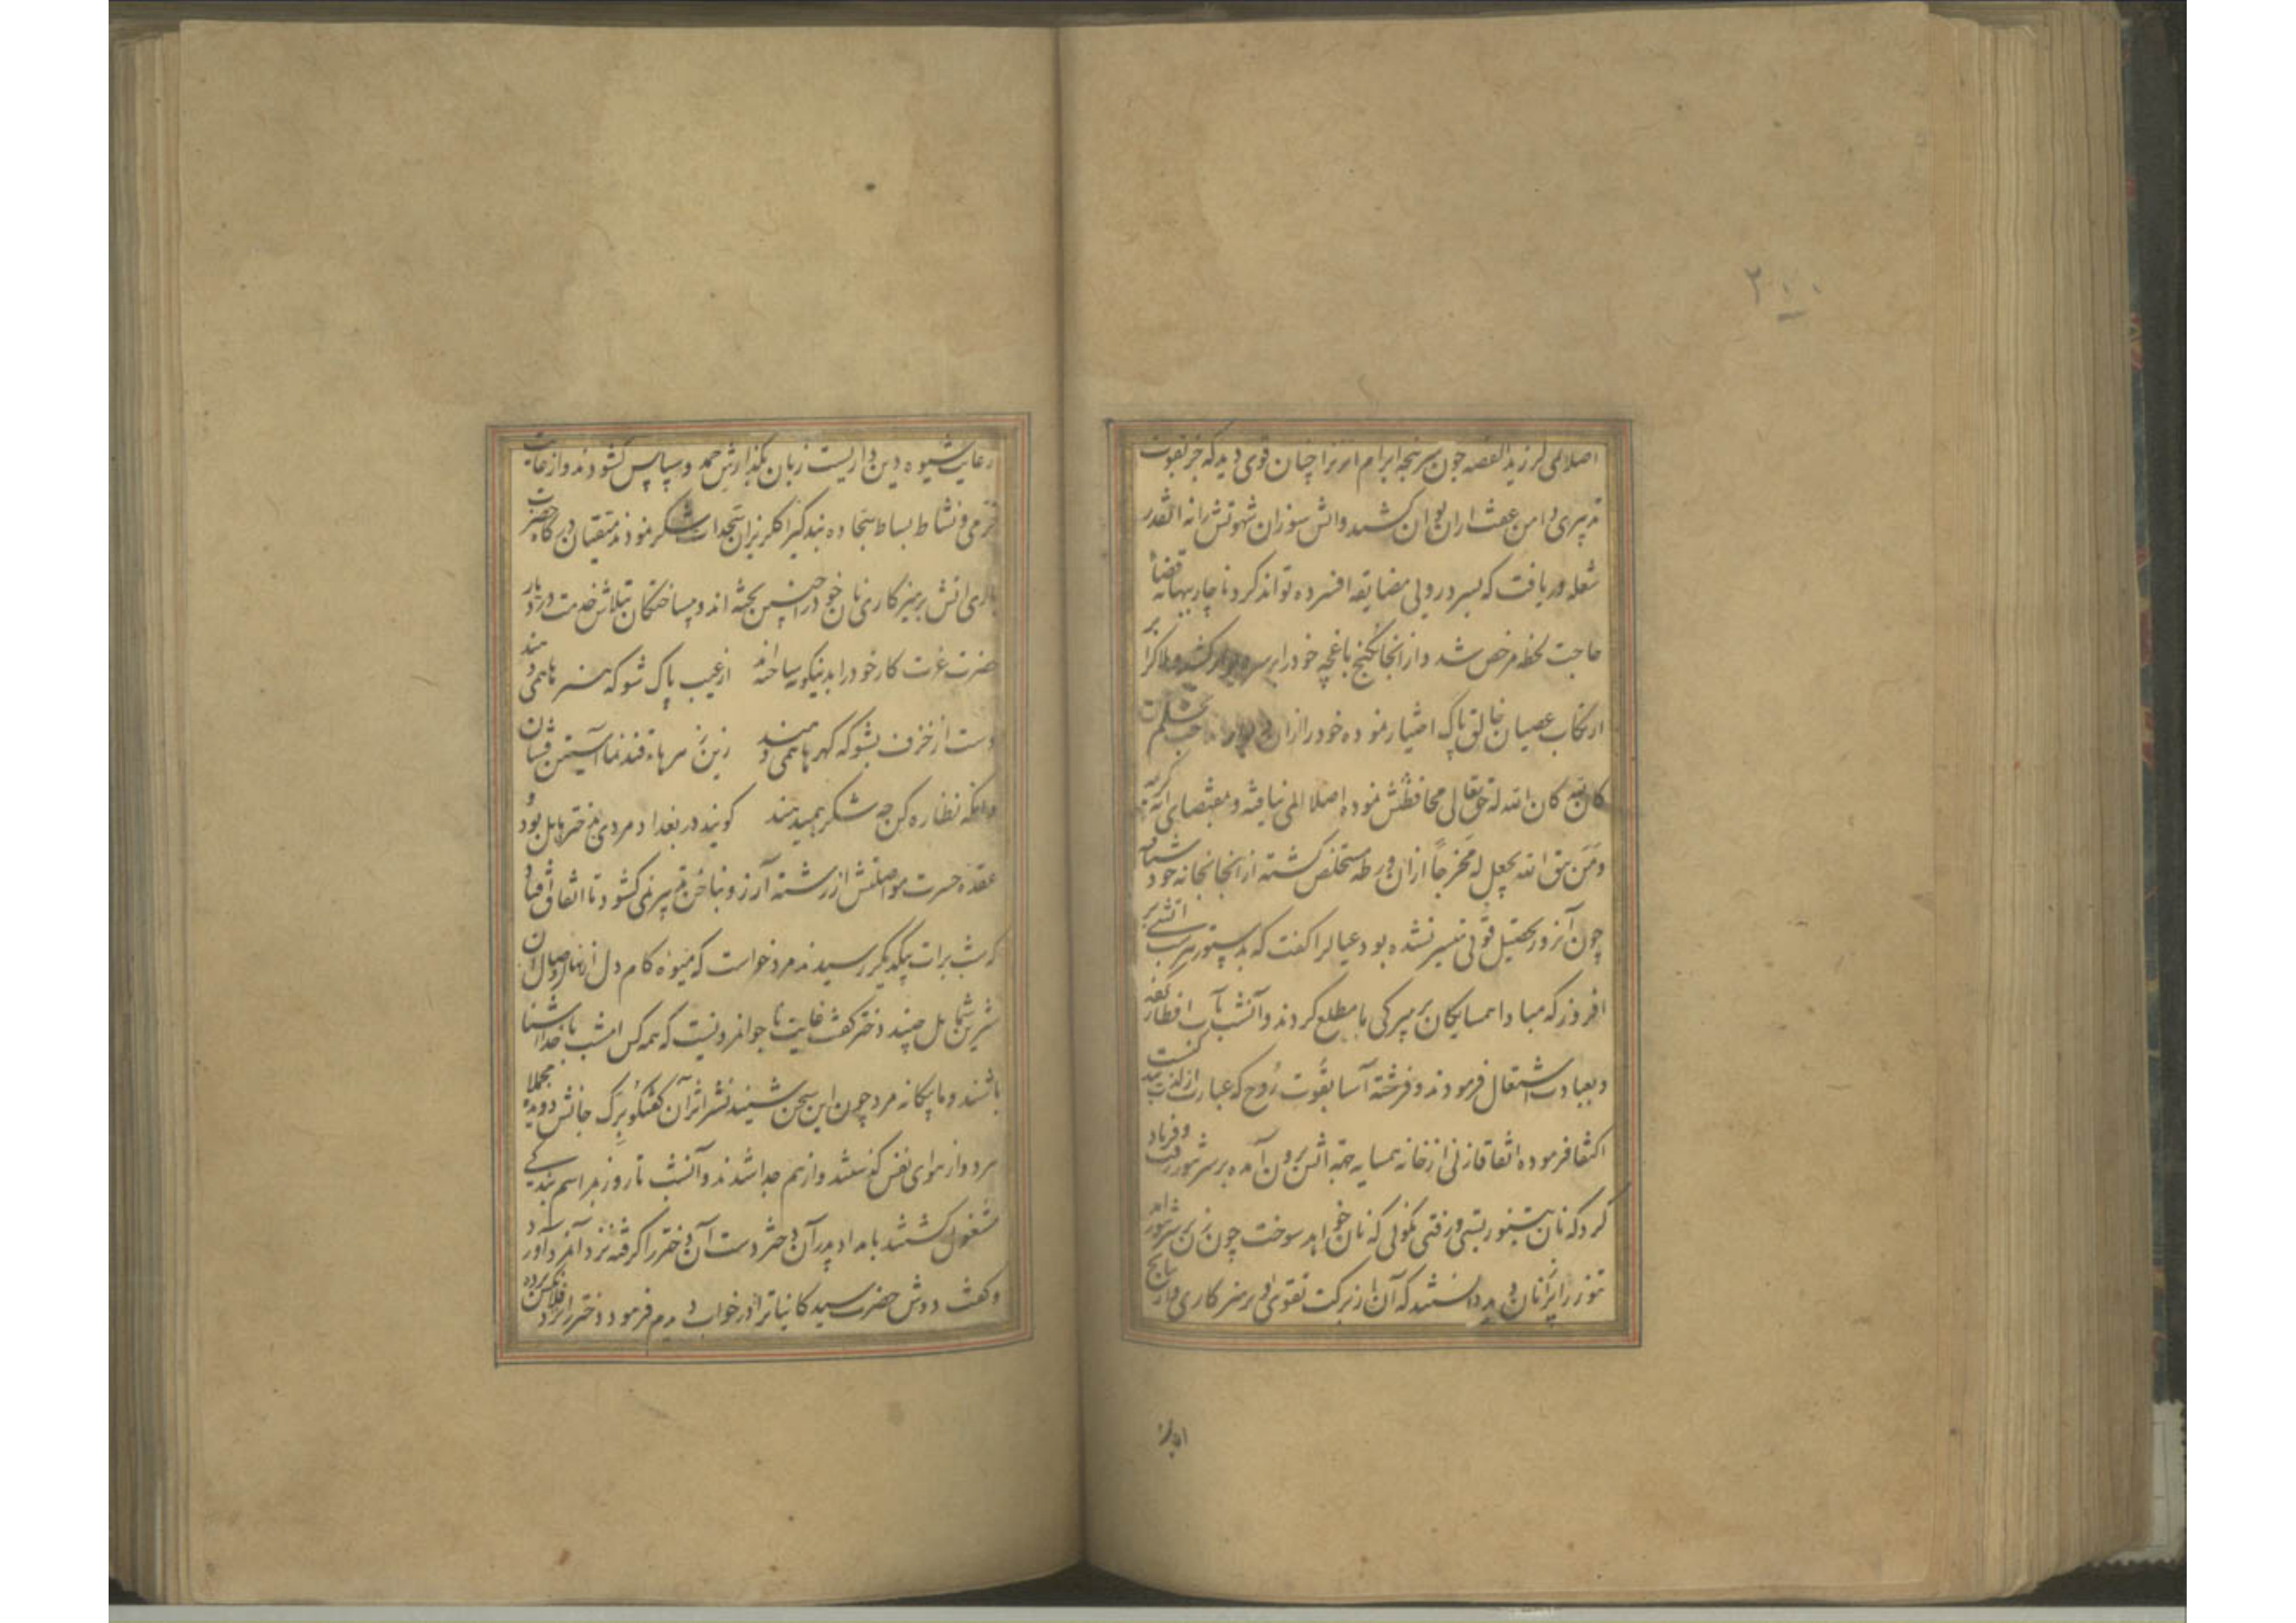 ۲۰۰
اصلا المی لرزید القصه چون سرپنجه ابرام انزنرا چنان قوی دید که جز بقوت
تدبیری دامن عفت ازان توان کشید واتش سوزان شهوتش رانه انقدر
شعله ور یافت که بسردرویی مضایقه افسرده تواند کرد ناچار ببهانه قضاء
حاجت لحظه مرخص شد و از انجا بکنج باغچه خود را بر سر دیوار کشید و هلاک را بر
ارتکاب عصیان خالق پاک اختیار نموده خود را از ان دیوار
کان لله کان الله له حق تعالی محافظتش نموده اصلا المی نیافته و بمقتضای کریمه
ومن یتق الله یجعل له مخرجا ازان ورطه مستخلص گشته از انجا بخانه خود شتافت
چون آنروز تحصیل قوتی میسر نشده بود عیالرا گفت که بدستور هر شب اتشی بر
افروز که مبادا همسایکان بر بی برکی ما مطلع کردند و آنشب بآب افطار
و بعبادت اشتغال فرمودند و فرشته آسا بقوت روح که عبارت از
اکتفا فرموده اتفاقا زنی از خانه همسایه جهة اتش برون آمده بر سر تنور رفت وفریاد
کرد که نان بتنور بستی و رفتی نکوئی که نان خواهد سوخت چون زن بر سر تنور
تنور را پر از نان دید دانستند که آن از برکت تقوی و پرهیزکاری
رعایت شیوه دین داریست زبان بکذارش حمد و سپاس کشودند و از غایت
خرمی و نشاط بساط سجاده بندگی را کلریزان سجدات شکر نمودند متقیان درگاه حضرت
باری اتش پرهیزکاری نان خود را چنین پخته اند و
حضرت عزت کار خود را بدینگونه ساخته اند از عیب پاک شو که هنرها همی دهند
دست از خزف بشو که کهرها همی دهند زین نی سرهاء قند نما آستین فشان
وانکه نظاره کن چه شکر میدهند کویند در بغداد مردی بدختری مایل بود و
عقده حسرت مواصلتش از رشته آرزو بناخن تدبیر نمی کشود تا اتفاق افتاد
که شب برات بیکدیگر رسیدند مرد خواست که میوه کام دل از نهال وصال ان
شیرین شمایل چیند دختر گفت غایت نا جوانمردیست که همه کس امشب با خدا آشنا
باشند و ما بیکانه مرد چون این سخن شنید نشتر اثر آن گفتکو برک جانش دویده
هر دو از هوای نفس گذشتند و از هم جدا شدند و آنشب تا روز بمراسم بندگی
مشغول گشتند بامداد پدر آن دختر دست آن دختر را گرفته نزد آنمرد آورد
و گفت دوش حضرت سید کاینات را در خواب دیدم فرمود دختر را